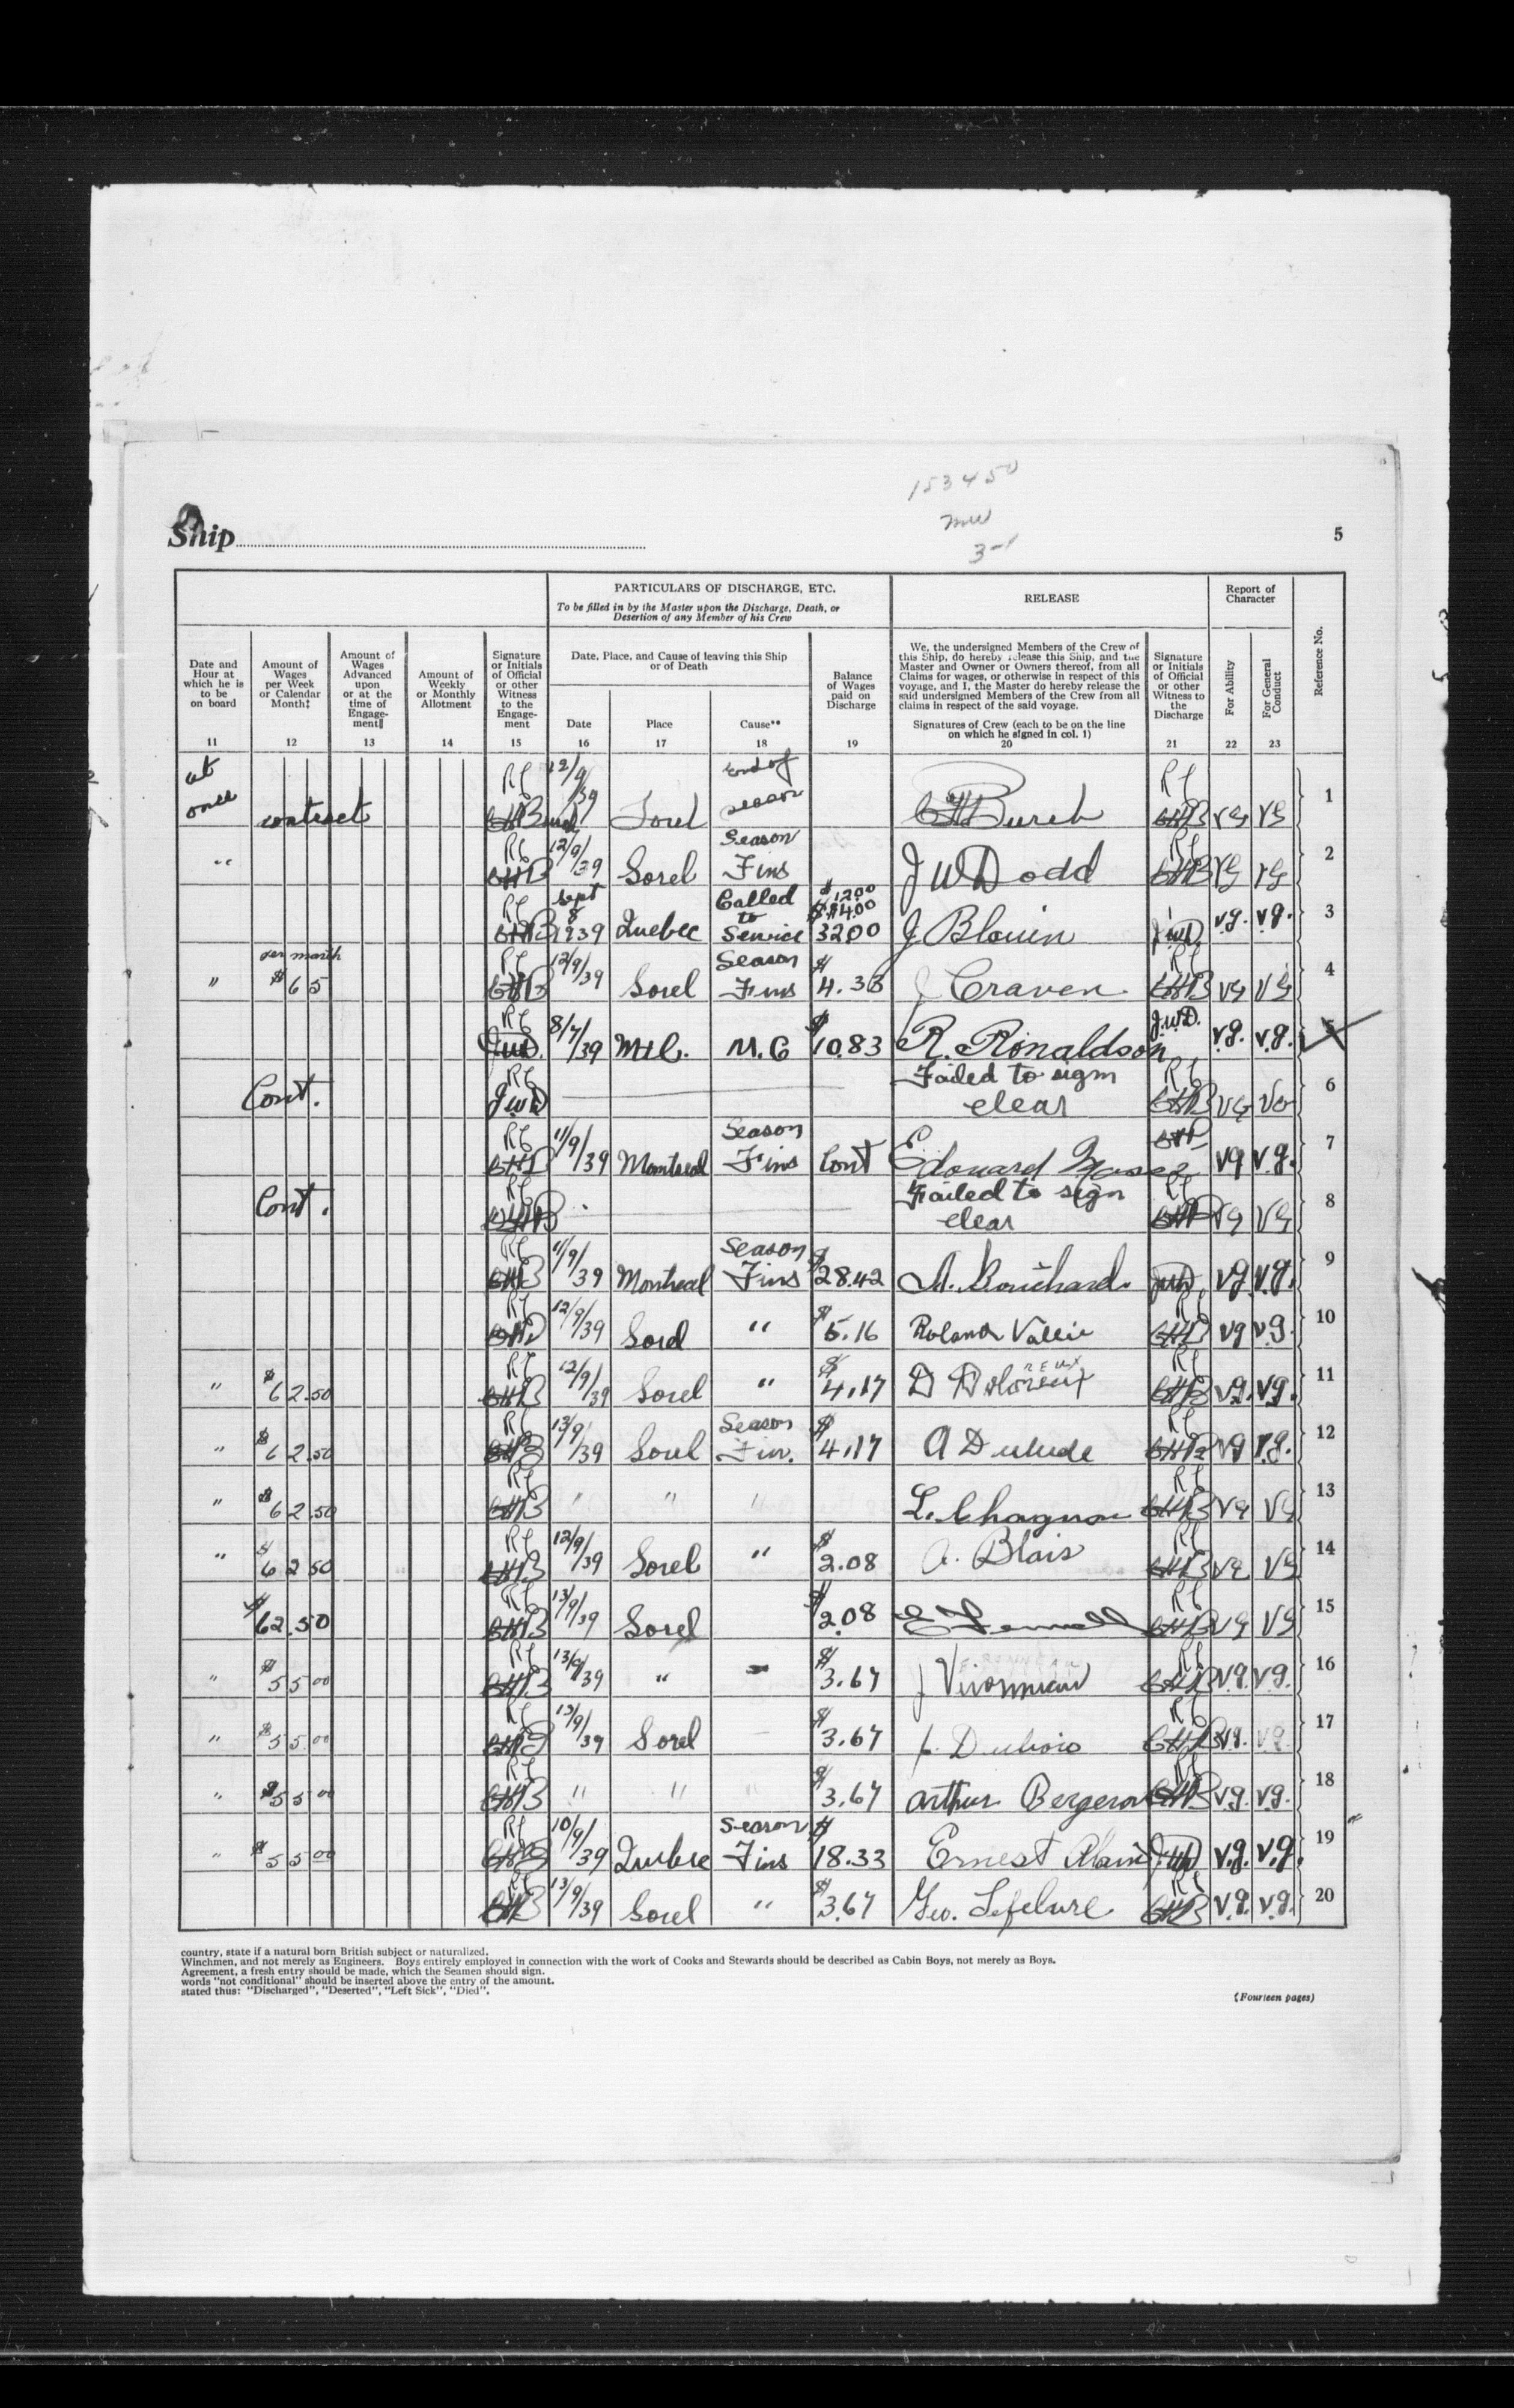 153450
3-1
Ship
5
PARTICULARS OF DISCHARGE, ETC.
To be filled in by the Master upon the Discharge, Death, or
Desertion of any Member of his Crew
RELEASE
Report of
Character
Reference No.
Date and
Hour at
which he is
to be
on board
11
Amount of
Wages
per Week
or Calendar
Month‡
12
Amount of
Wages
Advanced
upon
or at the
time of
Engage-
ment‖
13
Amount of
Weekly
or Monthly
Allotment
14
Signature
or Initials
of Official
or other
Witness
to the
Engage-
ment
15
Date, Place, and Cause of leaving this Ship
or of Death
Date
16
Place
17
Cause**
18
Balance
of Wages
paid on
Discharge
19
We, the undersigned Members of the Crew of
this Ship, do hereby release this Ship, and the
Master and Owner or Owners thereof, from all
Claims for wages, or otherwise in respect of this
voyage, and I, the Master do hereby release the
said undersigned Members of the Crew from all
claims in respect of the said voyage.
Signatures of Crew (each to be on the line
on which he signed in col. 1)
20
Signature
or Initials
of Official
or other
Witness to
the
Discharge
21
For Ability
22
For General
Conduct
23
at once contract CHB 12/9/39 Sorel end of season CHBurch CHB VG VG 1
" CHB 12/9/39 Sorel Season Fins J W Dodd CHB VG VG 2
CHB Sept 8 1939 Quebec Called to Service 32.00 J Blouin JWD v.g. v.g. 3
" per month $65 CHB 12/9/39 Sorel Season Fins $4.33 J Craven CHB VG VG 4
JWD. 8/7/39 Mtl. M.C $10.83 R. Ronaldson J.W.D. v.g. v.g. 5
Cont. JWD Failed to sign clear CHB VG VG 6
CHB 11/9/39 Montreal Season Fins Cont Edouard CHB vg v.g. 7
Cont. CHB Failed to sign clear CHB VG VG 8
CHB 11/9/39 Montreal Season Fins $28.42 A. Bouchard JWD v.g v.g. 9
CHB 12/9/39 Sorel " $5.16 Roland Vallée CHB vg v.g. 10
" $62.50 CHB 12/9/39 Sorel " $4.17 D CHB v.g. v.g. 11
" $62.50 CHB 13/9/39 Sorel Season Fin. $4.17 A Dulude CHB vg v.g. 12
" $62.50 CHB " " " L. Chagnon CHB VG VG 13
" $62.50 CHB 12/9/39 Sorel " $2.08 A. Blais CHB VG VG 14
$62.50 CHB 13/9/39 Sorel $2.08 CHB VG VG 15
" $55.00 CHB 13/9/39 " $3.67 J CHB v.g. v.g. 16
" $55.00 CHB 13/9/39 Sorel $3.67 Dubois CHB v.g. v.g. 17
" $55.00 CHB " " " $3.67 Arthur Bergeron CHB v.g. v.g. 18
" $55.00 CHB 10/9/39 Quebec Season Fins $18.33 Ernest Alain JWD v.g. v.g. 19
CHB 13/9/39 Sorel " $3.67 Geo. Lefebvre CHB v.g. v.g. 20
country, state if a natural born British subject or naturalized.
Winchmen, and not merely as Engineers. Boys entirely employed in connection with the work of Cooks and Stewards should be described as Cabin Boys, not merely as Boys.
Agreement, a fresh entry should be made, which the Seamen should sign.
words "not conditional" should be inserted above the entry of the amount.
stated thus: "Discharged", "Deserted", "Left Sick", "Died".
(Fourteen pages)